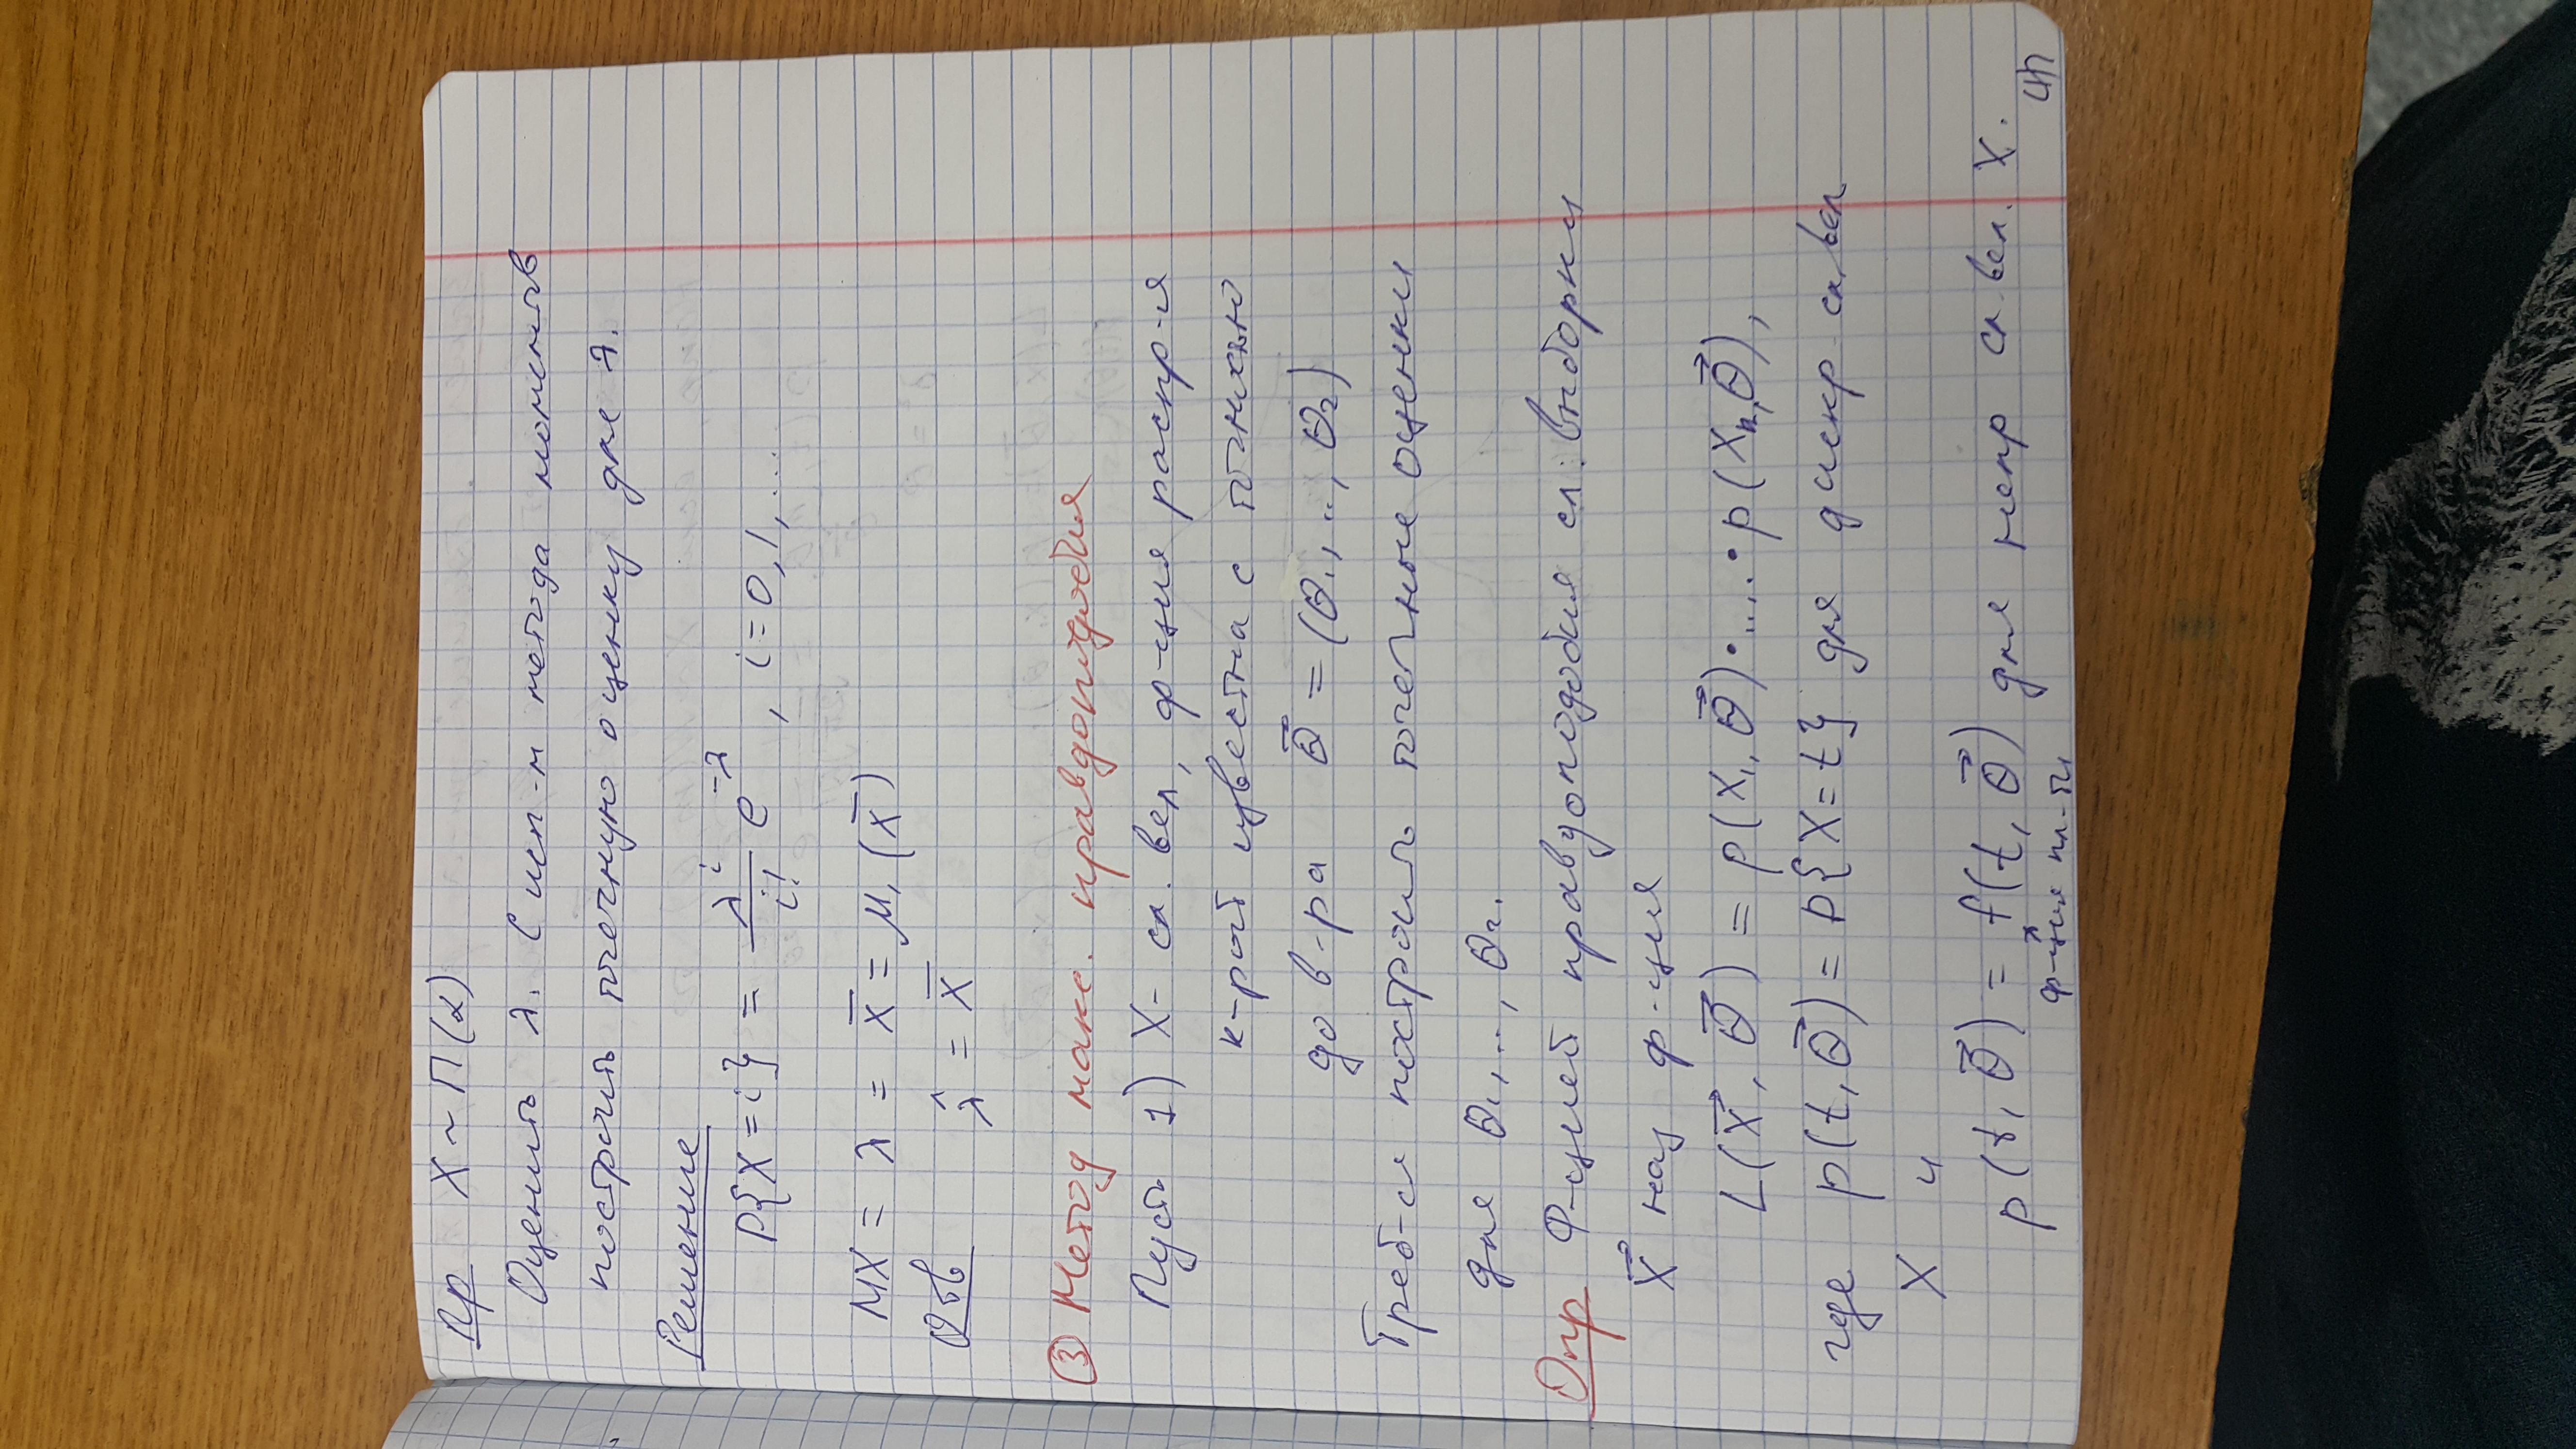 Пр X ~ П(λ)
Оценить λ. С исп-м метода моментов
построить точечную оценку для λ.
Решение
P{X = i} = λ^i / i! e^{-λ}, i = 0, 1, ...
MX = λ = x̄ = μ₁(x̄)
Отв λ̂ = X̄
③ Метод макс. правдоподобия
Пусть 1) X - сл. вел, ф-ция распр-я
к-рой известна с точностью
до в-ра θ⃗ = (θ₁, .., θr)
Треб-ся построить точечные оценки
для θ₁, .., θr.
Опр Ф-цией правдоподобия сл. выборки
X⃗ наз ф-ция
L(X⃗, θ⃗) = p(X₁, θ⃗)·....·p(Xn, θ⃗),
где p(t, θ⃗) = P{X = t} для дискр сл. вел
X и
p(t, θ⃗) = f(t, θ⃗) для непр сл. вел. X.
ф-ция пл-ти